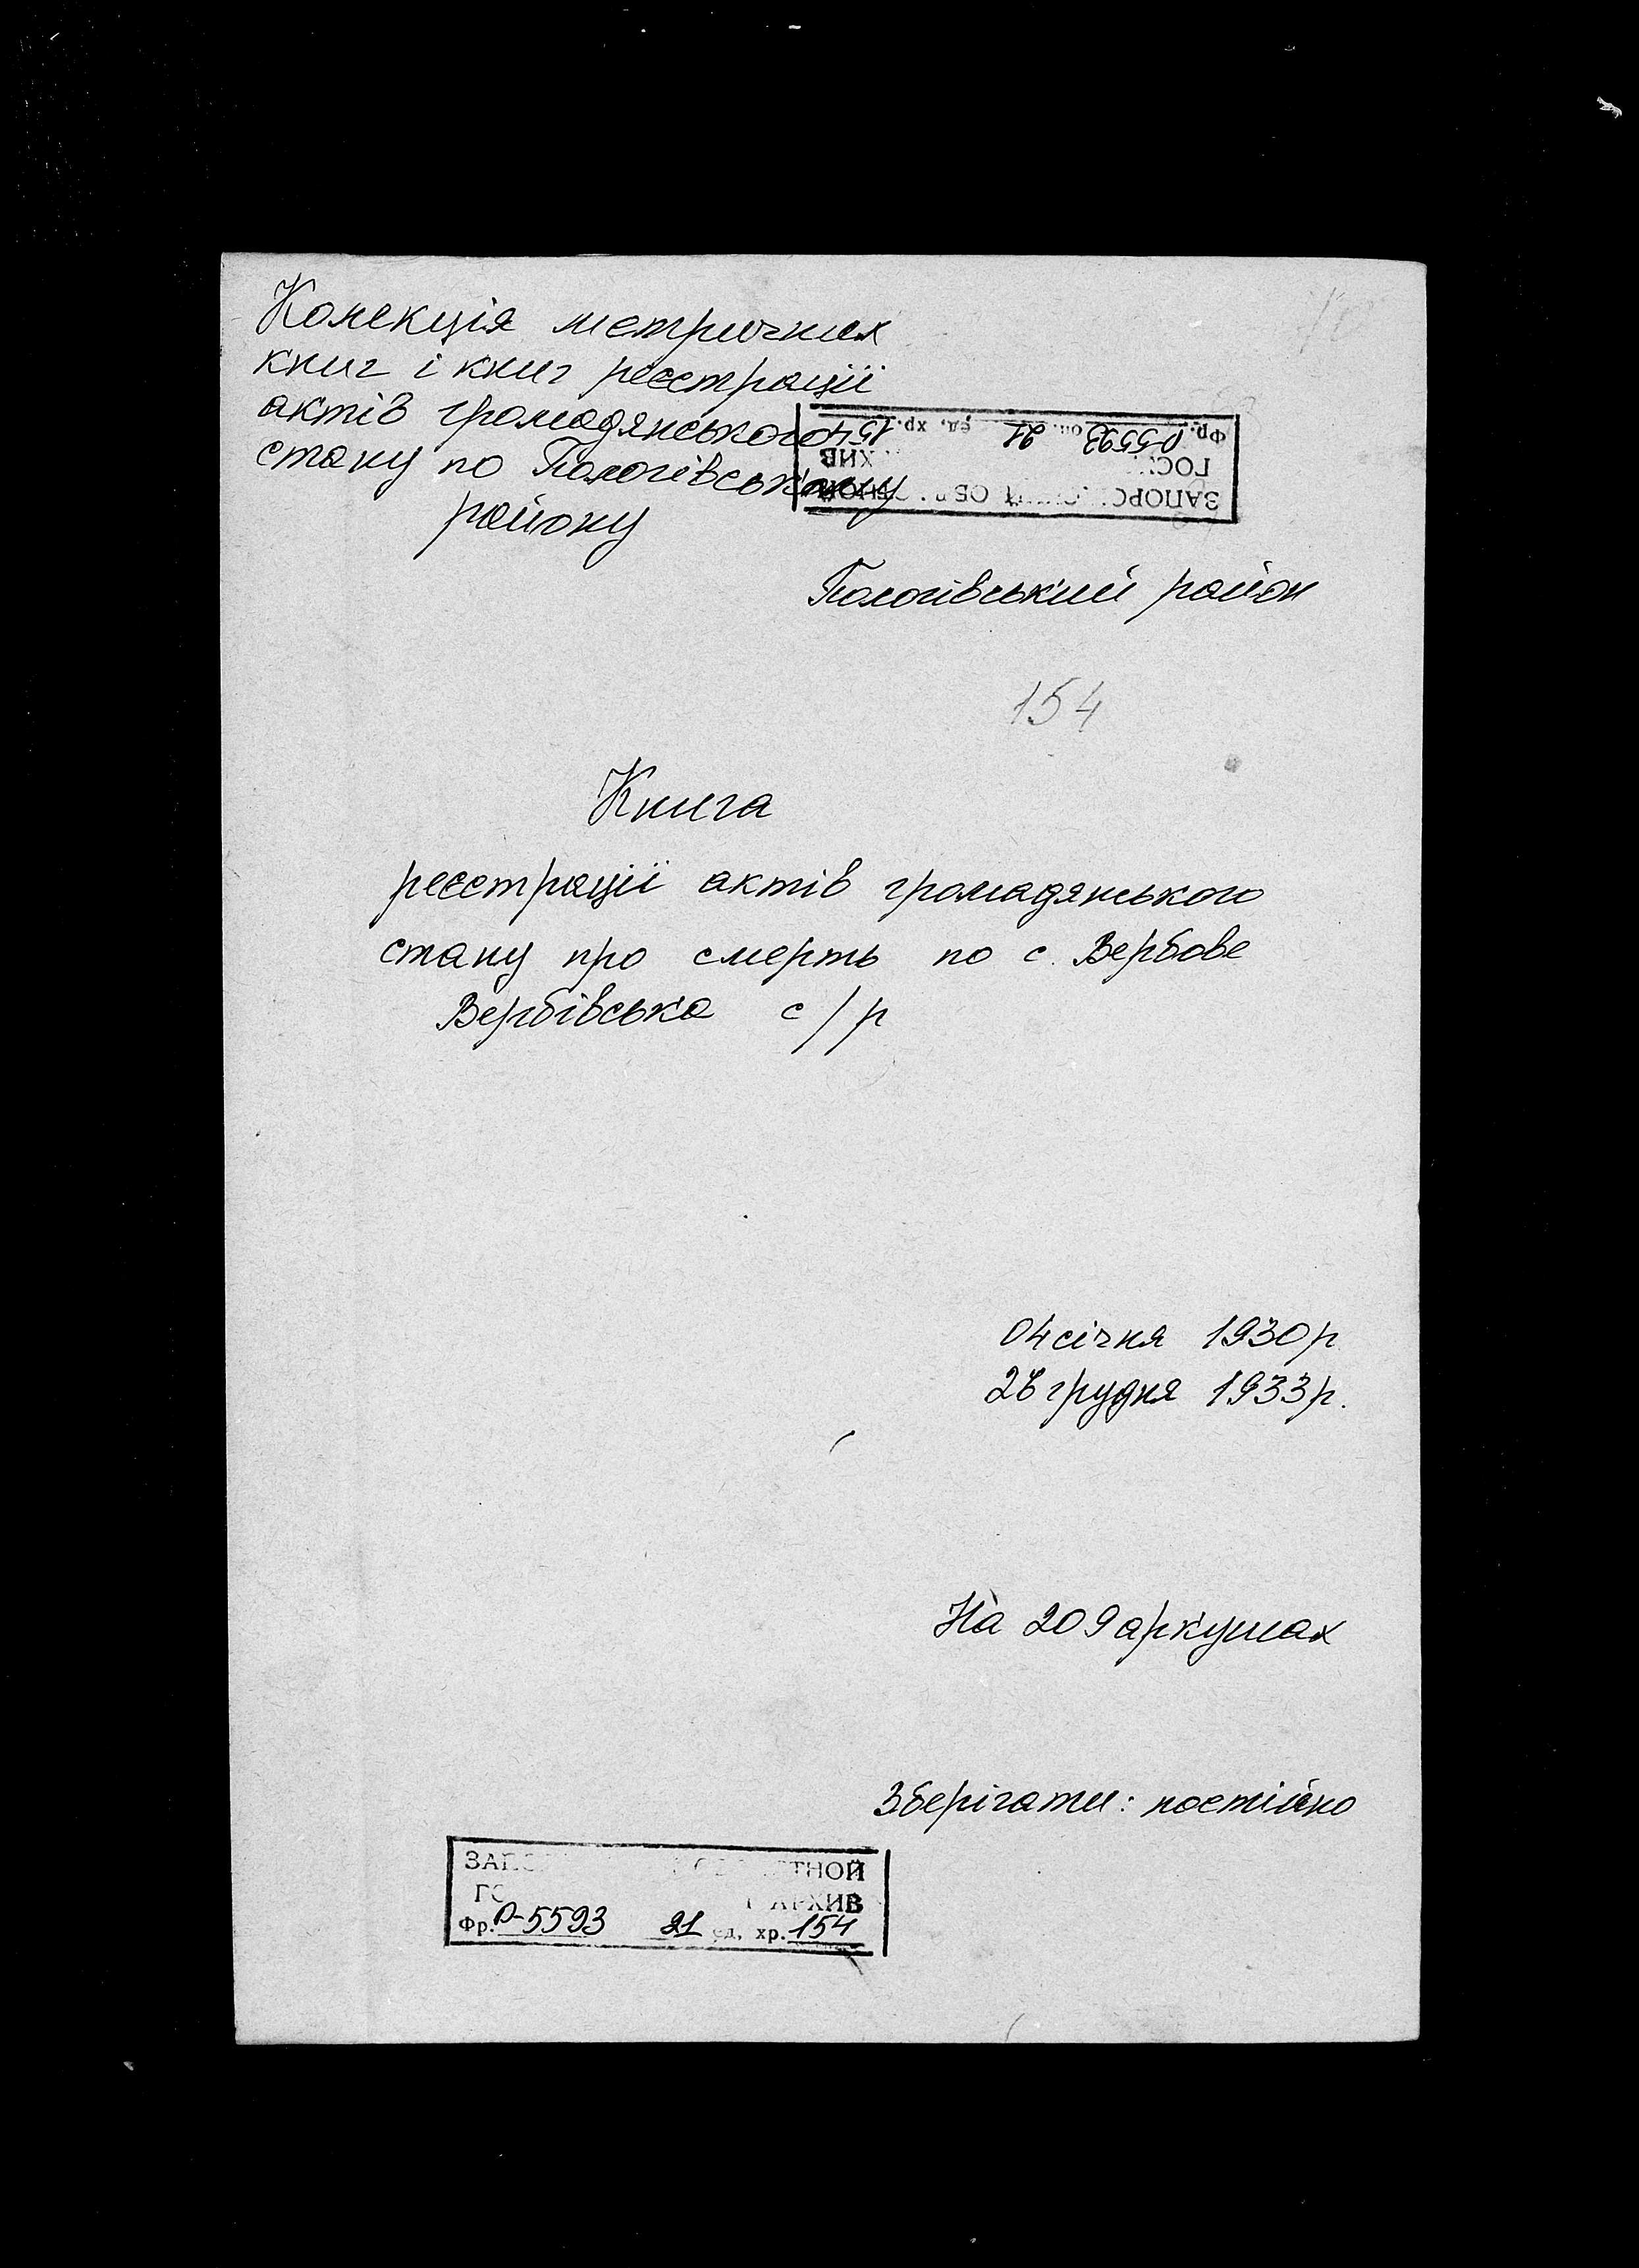 Колекція метричних
книг і книг реєстрації
актів громадянського
стану по Пологівському
району
Фр. Р-5593 оп. 21 ед. хр. 154
Пологівський район
154
Книга
реєстрації актів громадянського
стану про смерть по с. Вербове
Вербівська с/р
04 січня 1930 р
28 грудня 1933 р.
На 209 аркушах
Зберігати: постійно
АРХИВ
Фр. Р-5593 21 ед. хр. 154